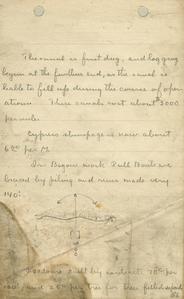 The canal is first dug, and log-ging
begun at the further end, as the canal is
liable to fill up during the course of oper-
ations. These canals cost about $3000
per mile.
Cypress stumpage is now about
6.00 per M.
In Bayou work Pull Boats are
braced by piling and runs made very
140°.
per
and 25¢ per tree for